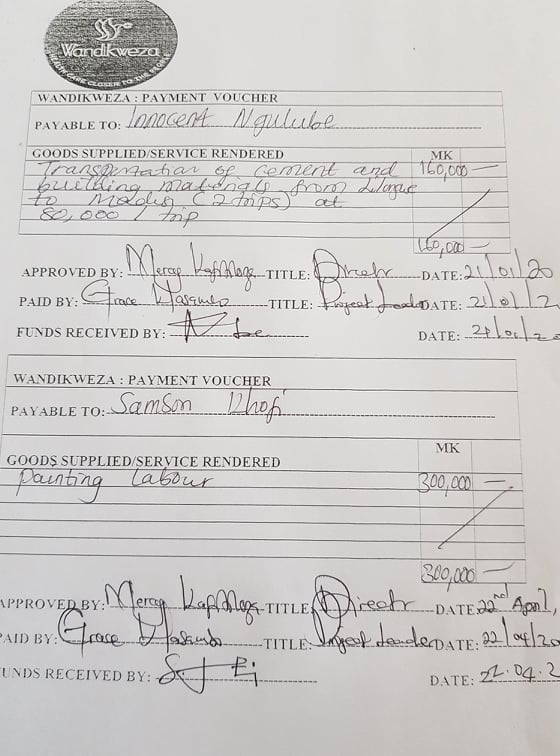 Wandikweza
WANDIKWEZA : PAYMENT VOUCHER
PAYABLE TO: Innocent Ngulube
GOODS SUPPLIED/SERVICE RENDERED MK
Transportation of cement and 160,000 —
building materials from
to (2 trips) at
80,000 / trip
160,000 —
APPROVED BY: Mercy TITLE: Director DATE: 21/01/20
PAID BY: Grace TITLE: Project Leader DATE: 21/01/2
FUNDS RECEIVED BY: DATE: 21/01/20
WANDIKWEZA : PAYMENT VOUCHER
PAYABLE TO: Samson
MK
GOODS SUPPLIED/SERVICE RENDERED
Painting Labour 300,000 —
300,000 —
APPROVED BY: Mercy TITLE: Director DATE: 22nd April,
PAID BY: Grace TITLE: Project Leader DATE: 22/04/20
UNDS RECEIVED BY: DATE: 22.04.2